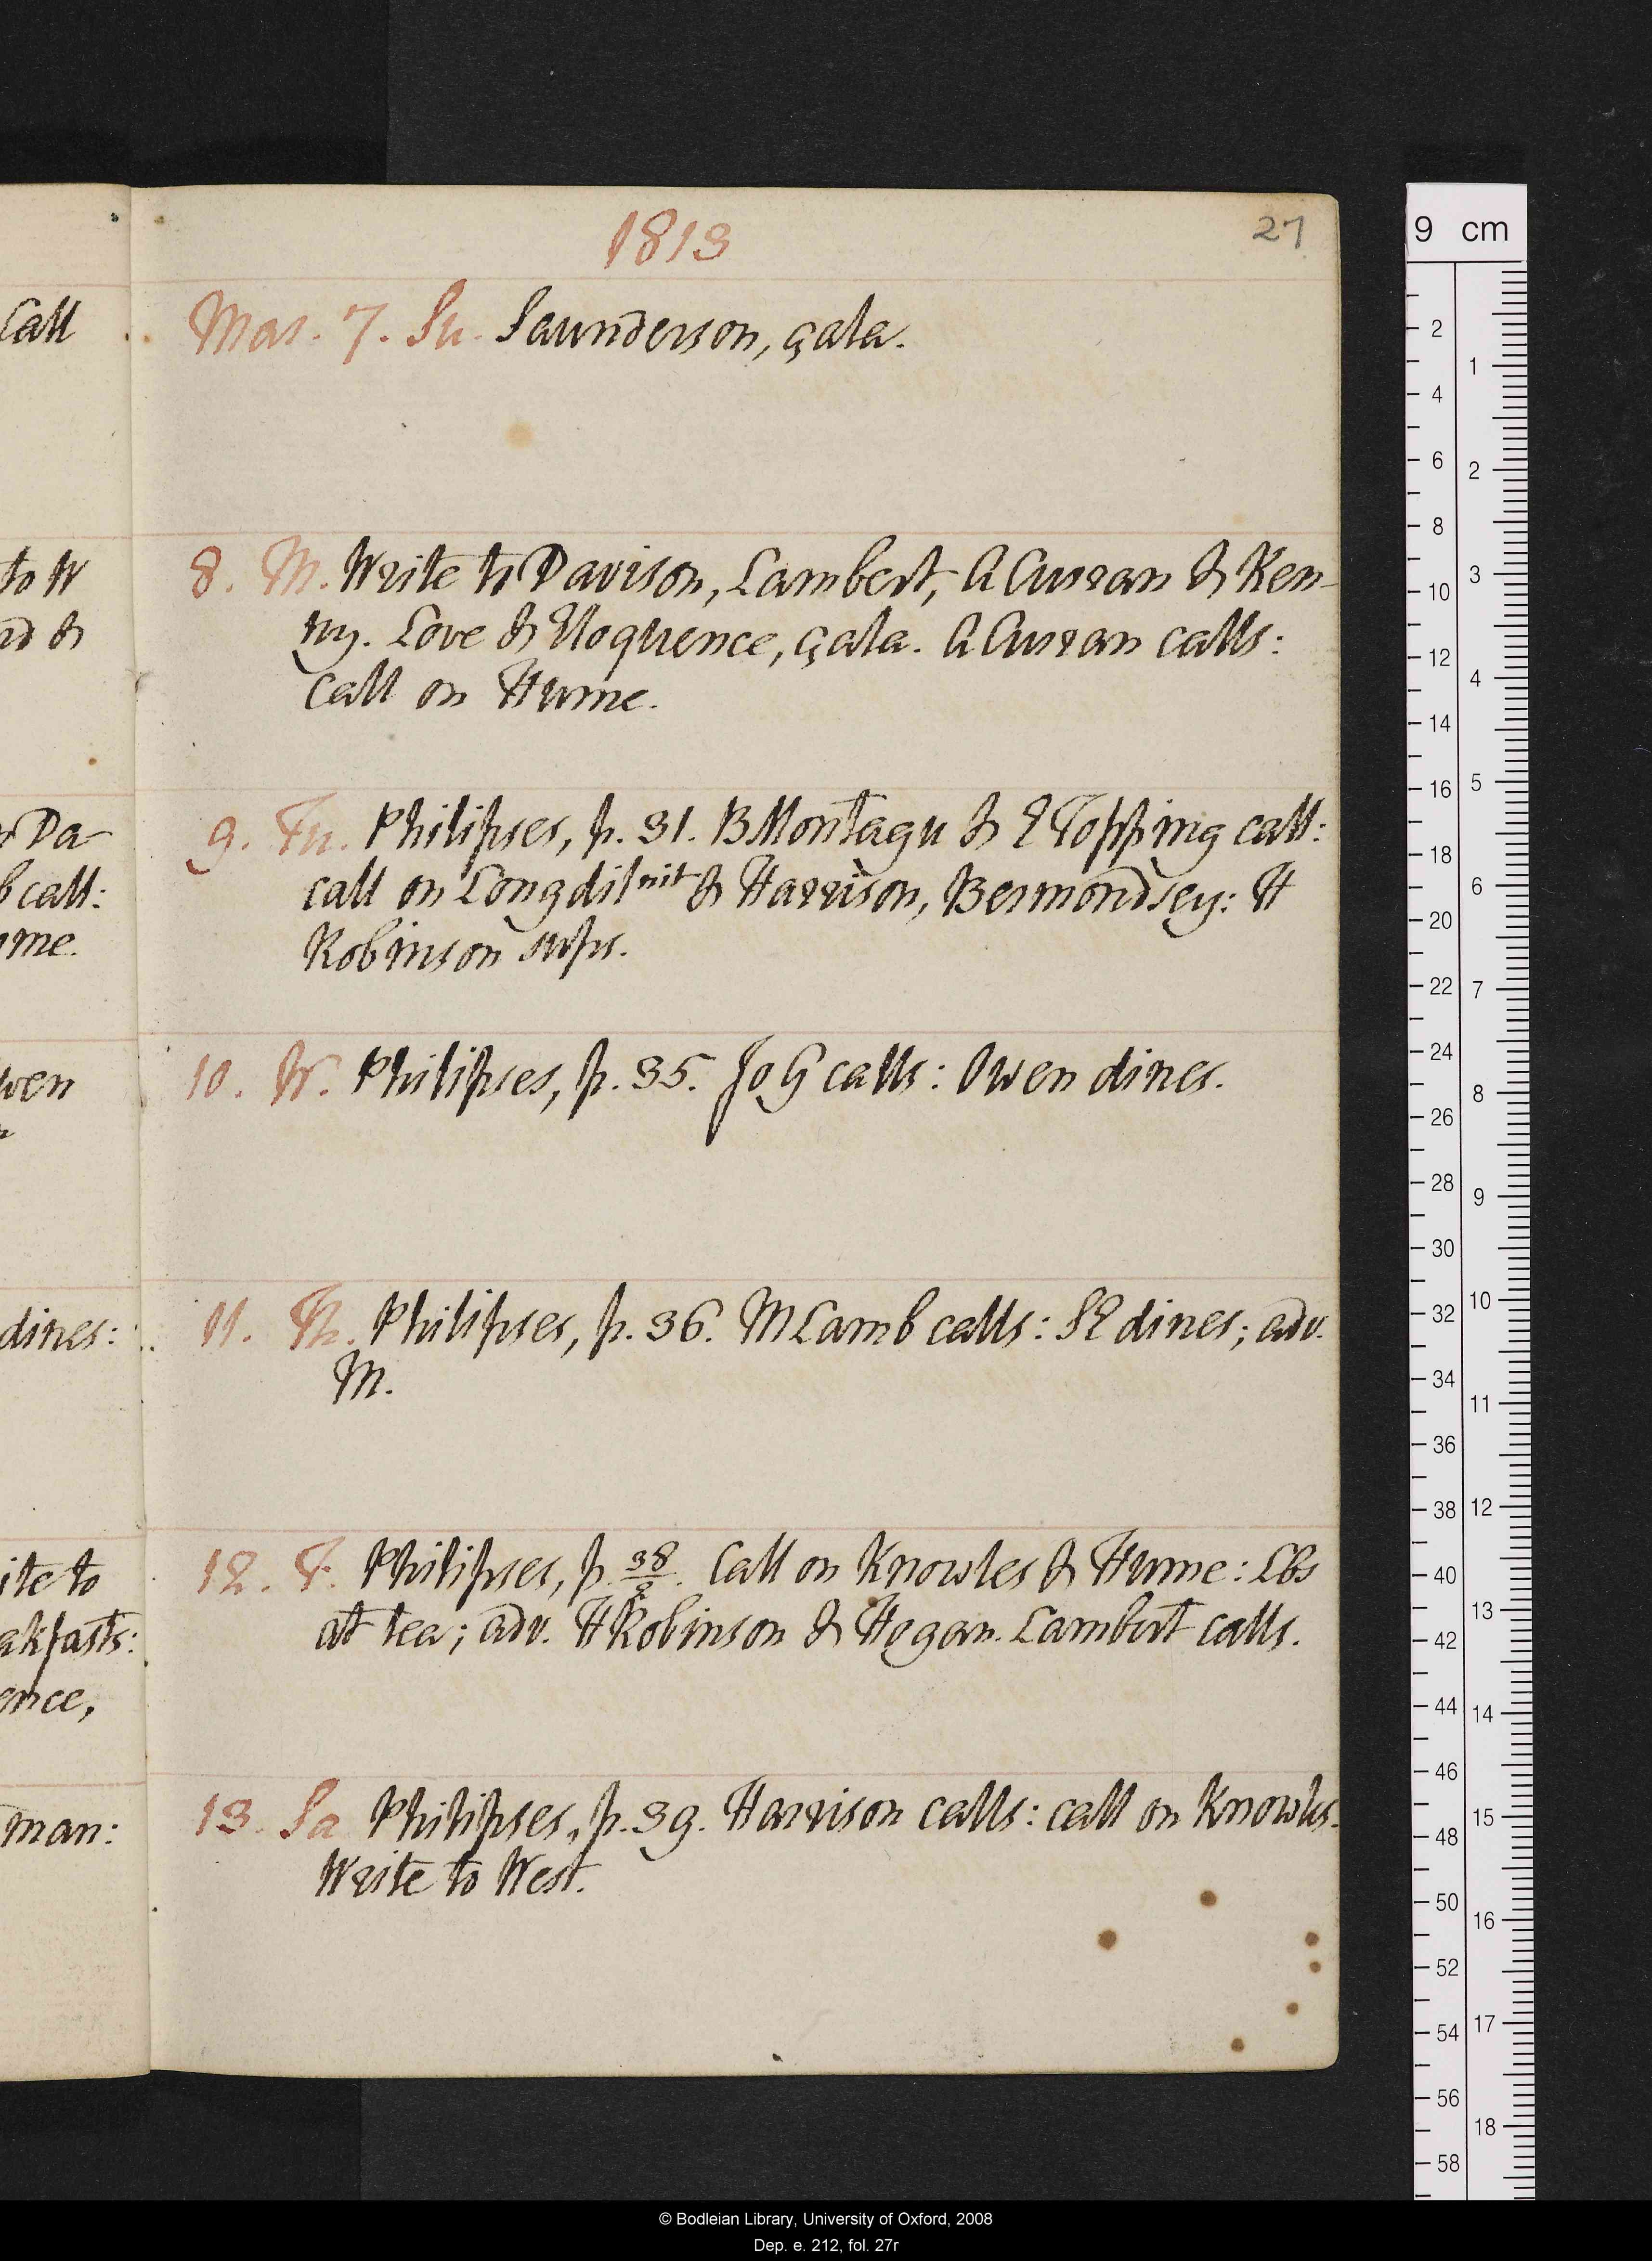 1813
27
Mar. 7. Su. Saunderson, çala.
8. M. Write to Davison, Lambert, A Curran & Ken-
ny. Love & Eloquence, çala. A Curran calls:
call on Hume.
9. Tu. Philipses, p. 31. B Montagu & E Topping call:
call on Longdil nit & Harrison, Bermondsey: H
Robinson sups.
10. W. Philipses, p. 35. Jo G calls: Owen dines.
11. Th. Philipses, p. 36. M Lamb calls: SE dines; adv.
M.
12. F. Philipses, p. 38/2. Call on Knowles & Hume: Lbs
at tea; adv. H Robinson & Hogan. Lambert calls.
13. Sa Philipses, p. 39. Harrison calls: call on Knowles.
Write to West.
Call
to W
nd &
Da-
b call:
me.
wen
dines:
ite to
akfasts:
ence,
man:
9 cm
2
4
6
8
10
12
14
16
18
20
22
24
26
28
30
32
34
36
38
40
42
44
46
48
50
52
54
56
58
1
2
3
4
5
6
7
8
9
10
11
12
13
14
15
16
17
18
© Bodleian Library, University of Oxford, 2008
Dep. e. 212, fol. 27r